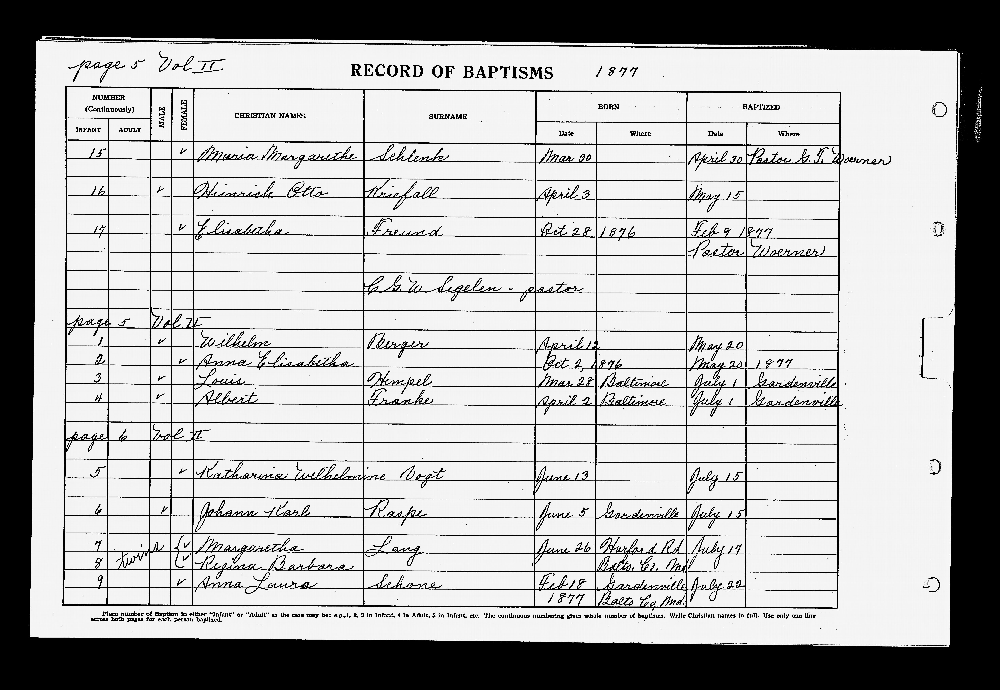 page 5 Vol II
RECORD OF BAPTISMS 1877
NUMBER (Continuously) MALE FEMALE CHRISTIAN NAMES SURNAME BORN BAPTIZED
INFANT ADULT Date Where Date Where
15 v Maria Margarethe Schlenk Mar 30 April 30 Pastor G. F. Woerner
16 v Heinrich Otto Kriefall April 3 May 15
17 v Elisabetha Freund Oct 28 1876 Feb 9 1877
Pastor Woerner
C G W Segelen - pastor
page 5 Vol II
1 v Wilhelm Berger April 12 May 20
2 v Anna Elisabetha Oct 2, 1876 May 20 1877
3 v Louis Hempel Mar 28 Baltimore July 1 Gardenville
4 v Albert Franke April 2 Baltimore July 1 Gardenville
page 6 Vol II
5 v Katharina Wilhelmine Vogt June 13 July 15
6 v Johann Karl Raspe June 5 Gardenville July 15
7 twins { v Margaretha Lang June 26 Harford Rd July 17
8 { v Regina Barbara Balto. Co. Md
9 v Anna Laura Schone Feb 18 Gardenville July 22
1877 Balto Co Md.
Place number of Baptism in either "Infant" or "Adult" as the case may be: e.g., 1, 2, 3 in Infant, 4 in Adult, 5 in Infant, etc. The continuous numbering gives whole number of baptisms. Write Christian names in full. Use only one line
across both pages for each person baptized.